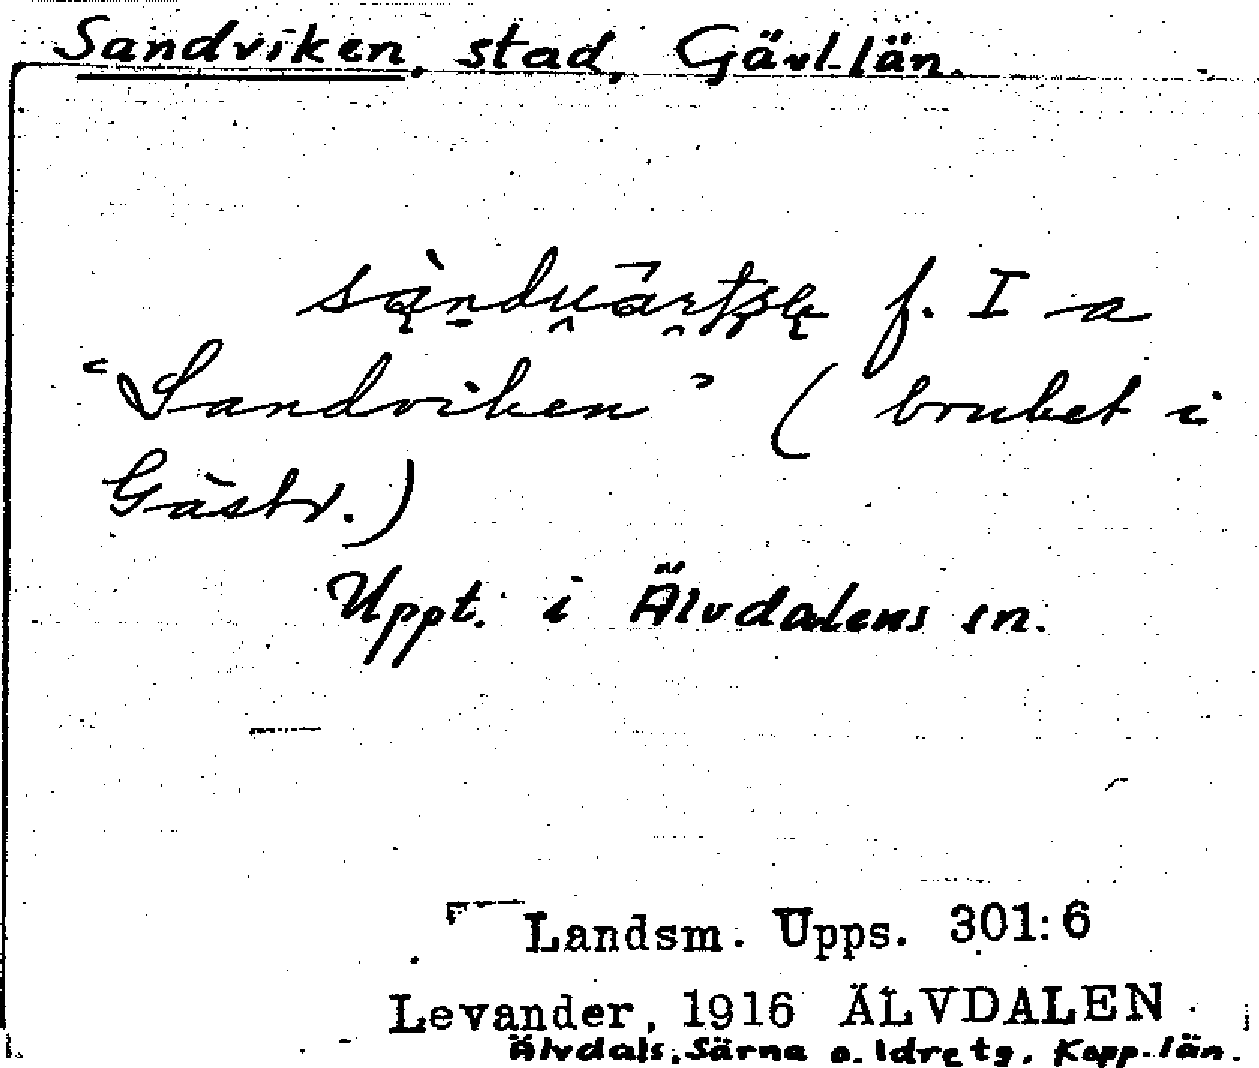 Sandviken, stad, Gävl-län.
f. I a
"Sandviken" (bruket i
Gästr.)
Uppt. i Älvdalens sn.
Landsm. Upps. 301:6
Levander, 1916 ÄLVDALEN
Älvdals, Särna o. Idre tg, Kopp-län.